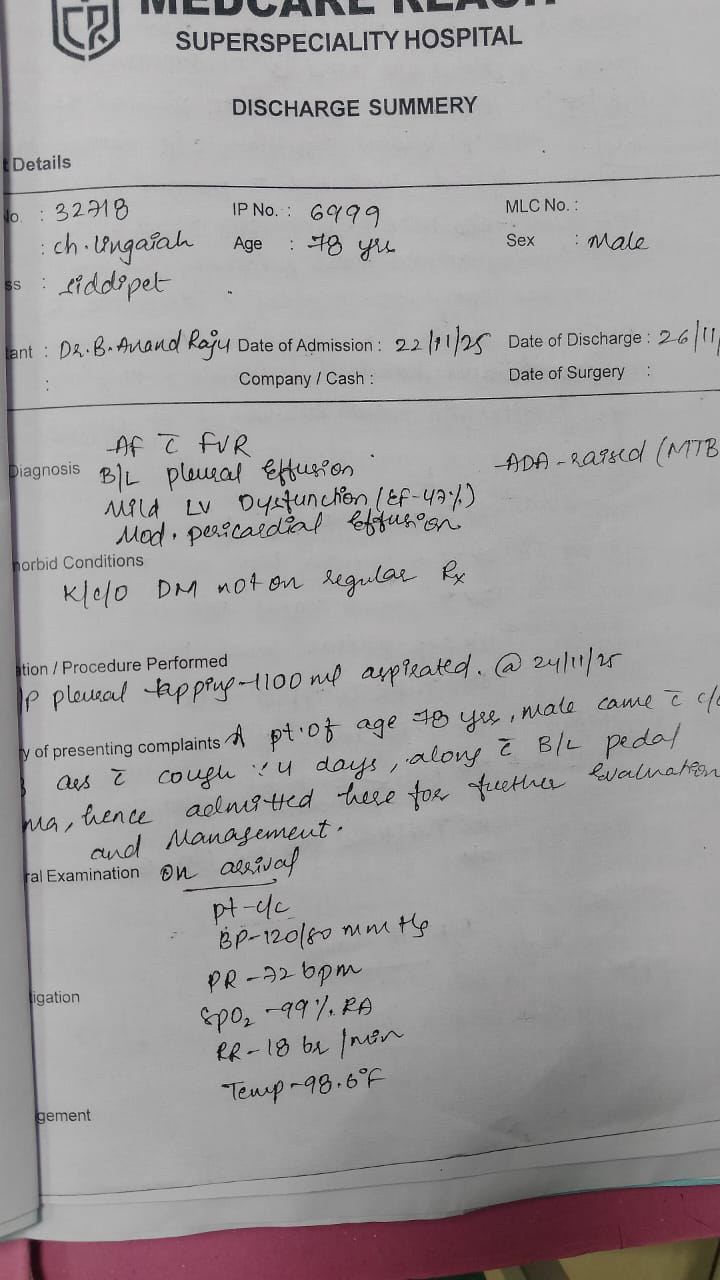 MEDCARE REACH
SUPERSPECIALITY HOSPITAL
DISCHARGE SUMMERY
t Details
No. : 32718 IP No. : 6999 MLC No. :
: ch. Lingaiah Age : 78 yrs Sex : Male
ss : siddipet
tant : Dr. B. Anand Raju Date of Admission : 22/11/25 Date of Discharge : 26/11/
: Company / Cash : Date of Surgery :
-AF c̄ FVR
Diagnosis B/L pleural Effusion -ADA-raised (MTB
Mild LV Dysfunction (EF-47%)
Mod. pericardial Effusion
morbid Conditions
K/c/o DM not on regular Rx
ation / Procedure Performed
pleural tapping-1100 ml aspirated. @ 24/11/25
y of presenting complaints A pt. of age 78 yrs, Male came c̄ c/o
c̄ cough : 4 days, along c̄ B/L pedal
ma, hence admitted here for further Evaluation
and Management.
ral Examination On arrival
pt-c/c
BP-120/80 mm Hg
PR-72 bpm
tigation
SPO₂-99% RA
RR-18 br/min
Temp-98.6°F
gement